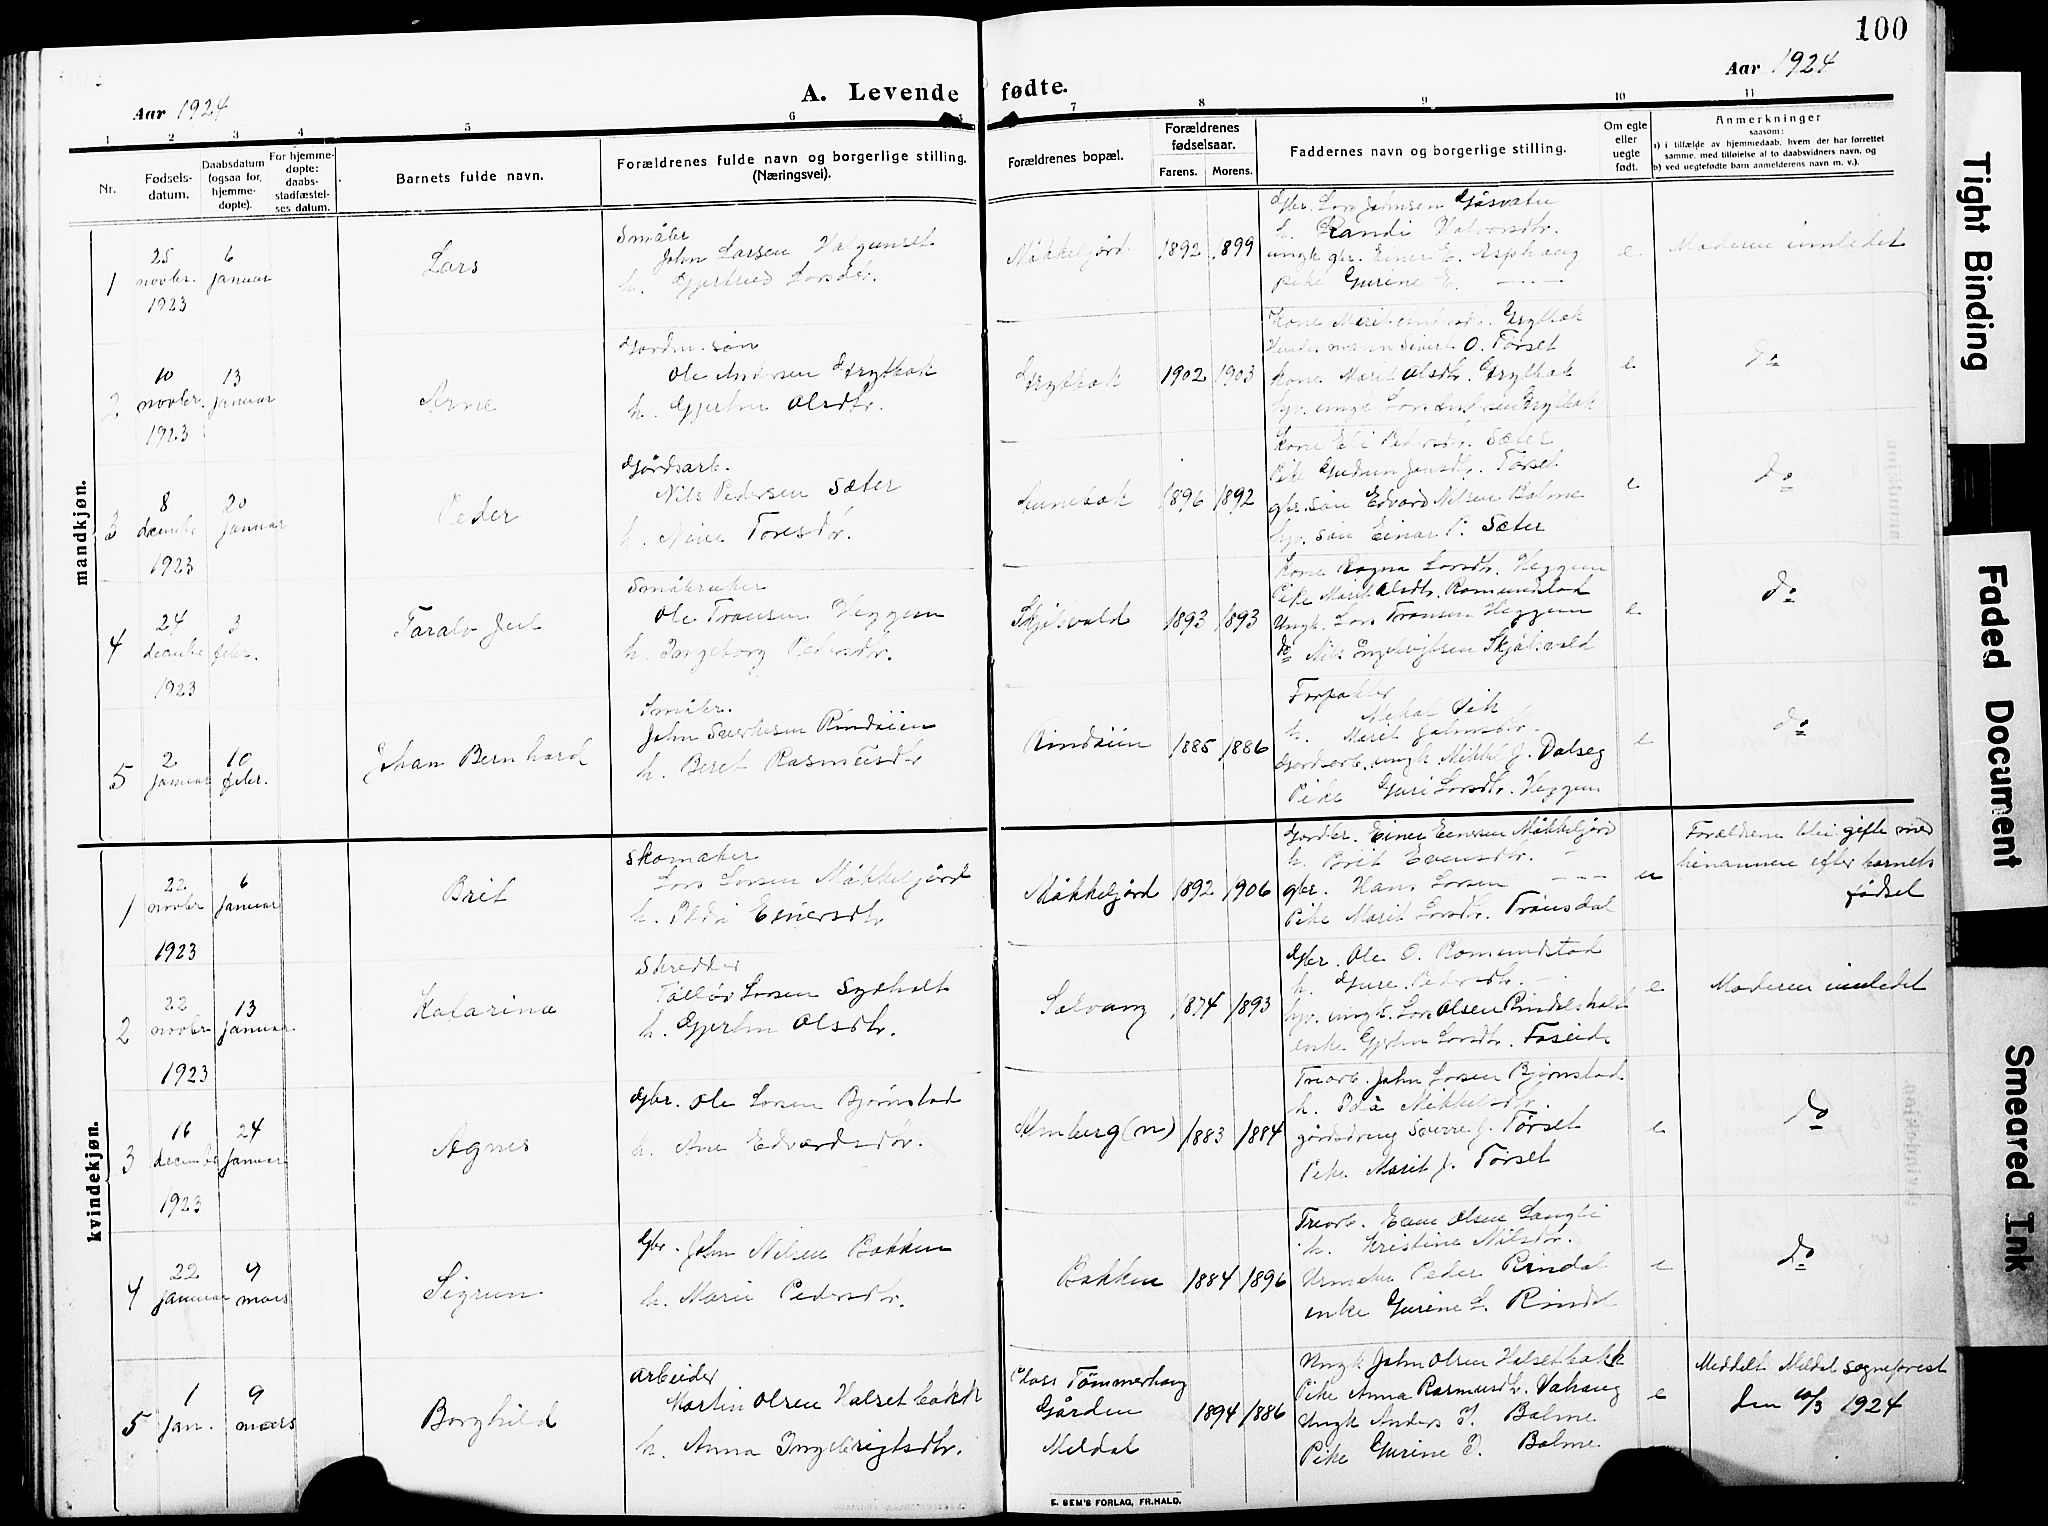 100
Aar 1924
A. Levende fødte.
Aar 1924
1 2 3 4 5 6 7 8 9 10 11
Nr.
Fødsels-
datum.
Daabsdatum
(ogsaa for
hjemme-
døpte).
For hjemme-
døpte:
daabs-
stadfæstel-
ses datum.
Barnets fulde navn.
Forældrenes fulde navn og borgerlige stilling.
(Næringsvei).
Forældrenes bopæl.
Forældrenes
fødselsaar.
Farens. Morens.
Faddernes navn og borgerlige stilling.
Om egte
eller
uegte
født.
Anmerkninger
saasom:
a) i tilfælde av hjemmedaab, hvem der har forrettet
samme, med tilføielse af to daabsvidners navn, og
b) ved uegtefødte barn anmelderens navn m. v.).
mandkjøn.
1
25
novbr.
1923
6
januar
Lars
Småbr
John Larsen Helgunset
h. Gjertrud Larsdtr.
Måkkeljord
1892 1899
Gbr. Lars Johnsen Gåsvatn
h. Randi Halvorsdtr.
ungk. gbr. Einer E. Asphaug
Pike Gurine E. — " —
e
Moderen innledet
2
10
novbr.
1923
13
januar
Arne
Gardm. søn
Ole Andersen Grytbak
h. Gjertru Olsdtr.
Grytbak
1902 1903
Kone Marit Andersdtr. Grytbak
Sivert O. Tørset
Kone Marit Olsdtr. Grytbak
ungk. Lars Andersen Grytbak
e
do
3
8
decembr
1923
20
januar
Peder
Gårdsarb.
Nils Pedersen Sæter
h. Toresdtr.
1896 1892
Kone Eli Pedersdtr. Sæter
Pike Gudrun Jensdtr. Tørset
gbr. søn Edvard Nilsen Bolme
søn Einar P. Sæter
e
do
4
24
decembr
1923
3
febr.
Småbruker
Ole Tronsen Heggem
h. Ingeborg Pedersdtr.
Skjølsvold
1893 1893
Kone Ragna Larsdtr. Heggem
Pike Marit Olsdtr. Romundstad
Ungk. Lars Tronsen Heggem
do Nils Ingebrigtsen Skjølsvold
e
do
5
2
januar
10
febr.
Johan Bernhard
Småbr.
John Sivertsen Rindåien
h. Beret Rasmusdtr
Rindåien
1885 1886
Forpakter
h. Marit Johnsdtr.
Gardsarb. ungk Mikkel J. Dalseg
Pike Guri Larsdtr. Heggem
e
do
kvindekjøn.
1
22
novbr
1923
6
januar
Brit
Skomaker
Lars Larsen Måkkeljord
h. Einersdtr
Måkkeljord
1892 1906
Gardbr. Einer Einersen Måkkeljord
h. Brit Evensdtr. —
gbr. Hans Larsen — " —
Pike Marit Larsdtr. Trønsdal
Forældrene blei gifte med
hinannen efter barnets
fødsel
2
22
novbr
1923
13
januar.
Katarina
Skredder
Larsen Sydhalt
h. Gjertru Olsdtr.
Solvang
1874 1893
Gbr. Ole O. Romundstad
h. Guri Pedersdtr. —
ungk. Lars Olsen Rindalsholt
enke Gjertru Larsdtr. Foseide
e
Moderen innledet
3
16
decembr
1923
24
januar
Agnes
Gbr. Ole Larsen Bjørnstad
h. Ane Edvardsdtr.
Almberg (n)
1883 1884
Trearb. John Larsen Bjørnstad
h. Ida Mikkelsdtr.
gårdsdreng Sverre J. Tørset
Pike Marit J. Tørset
e
do
4
22
januar
9
mars
Sigrun
Gbr. John Nilsen Bakken
h. Marie Pedersdtr.
Bakken
1884 1896
Trearb. Even Olsen Langli
h. Kristine Nilsdtr.
Urmaker Peder Rindal
enke Gurine L. Rindal
e
do
5
1
jan.
9
mars
Borghild
arbeider
Martin Olsen Halsetbakk
h. Anna Ingebrigtsdtr.
Plass Tømmerhaug
Gården
Meldal
1894 1886
Ungk John Olsen Halsetbakk
Pike Anna Rasmusdtr. Vahaug
Ungk Anders I. Bolme
Pike Gurine I. Bolme
e
Meddelt Meldal sogneprest
den 10/3 1924
E. SEM'S FORLAG, FR.HALD.
Tight Binding
Faded Document
Smeared Ink